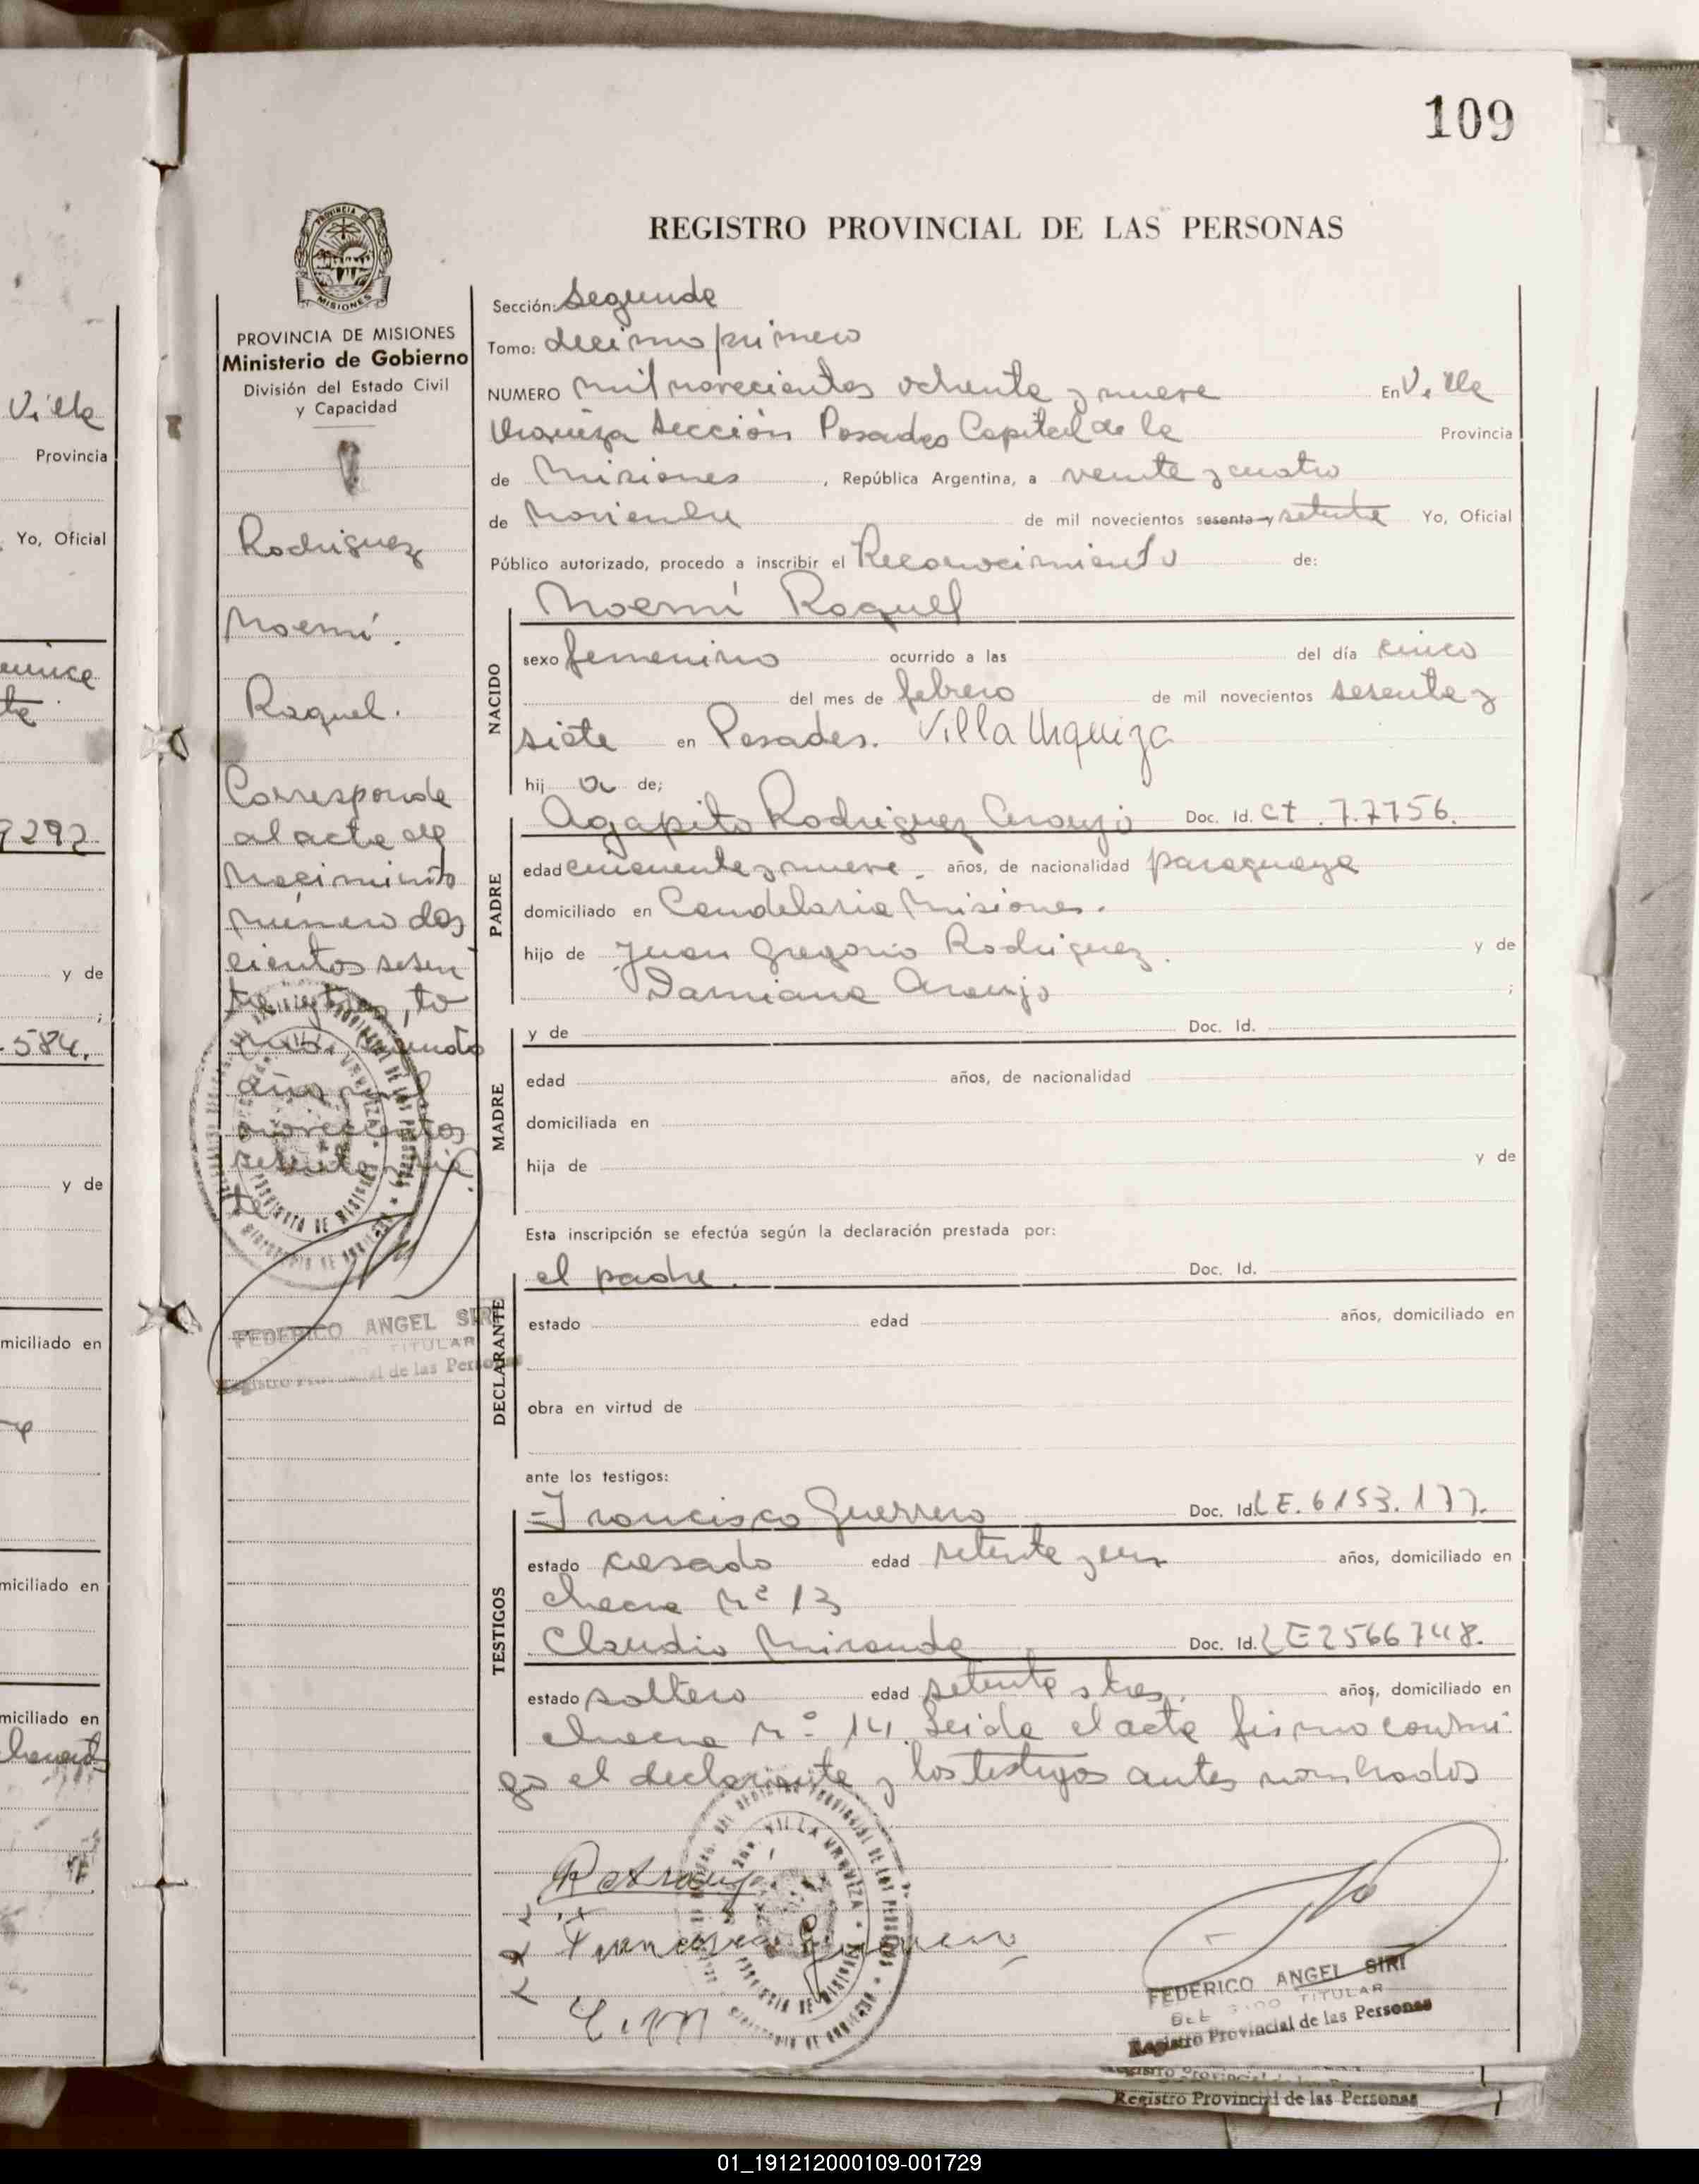 109
REGISTRO PROVINCIAL DE LAS PERSONAS
PROVINCIA DE MISIONES
Ministerio de Gobierno
División del Estado Civil
y Capacidad
Rodriguez
Noemí.
Raquel.
Corresponde
al acta de
Nacimiento
número dos
cientos sesen
ta y tres, to
mo segundo
año mil
novecientos
sesenta y sie
te
FEDERICO ANGEL SIRI
TITULAR
Registro Provincial de las Personas
Sección: Segunda
Tomo: decimo primero
NUMERO mil novecientos ochenta y nueve En Villa
Urquiza Sección Posadas Capital de la Provincia
de Misiones, República Argentina, a veinte y cuatro
de Noviembre de mil novecientos sesenta y setenta Yo, Oficial
Público autorizado, procedo a inscribir el Reconocimiento de:
NACIDO
Noemí Raquel
sexo femenino ocurrido a las del día cinco
del mes de febrero de mil novecientos sesenta y
siete en Posadas. Villa Urquiza
hij a de;
PADRE
Agapito Rodriguez Araujo Doc. Id. CI. 7.7756.
edad cincuenta y nueve. años, de nacionalidad paraguaya
domiciliado en Candelaria Misiones.
hijo de Juan Gregorio Rodriguez. y de
Damiana Araujo ;
MADRE
y de Doc. Id.
edad años, de nacionalidad
domiciliada en
hija de y de
Esta inscripción se efectúa según la declaración prestada por:
DECLARANTE
el padre. Doc. Id.
estado edad años, domiciliado en
obra en virtud de
ante los testigos:
TESTIGOS
Francisco Guerrero Doc. Id. LE. 6153.177.
estado casado edad setenta y un años, domiciliado en
chacra Nº 13
Claudio Miranda Doc. Id. LE2566748.
estado soltero edad setenta y tres. años, domiciliado en
chacra Nº 14. Leida el acta firma conmi
go el declarante y los testigos antes nombrados
Francisco Guerrero
C. M
FEDERICO ANGEL SIRI
TITULAR
Registro Provincial de las Personas
Registro Provincial de las Personas
Villa
Provincia
Yo, Oficial
9292
y de
;
584.
y de
miciliado en
miciliado en
miciliado en
01_191212000109-001729